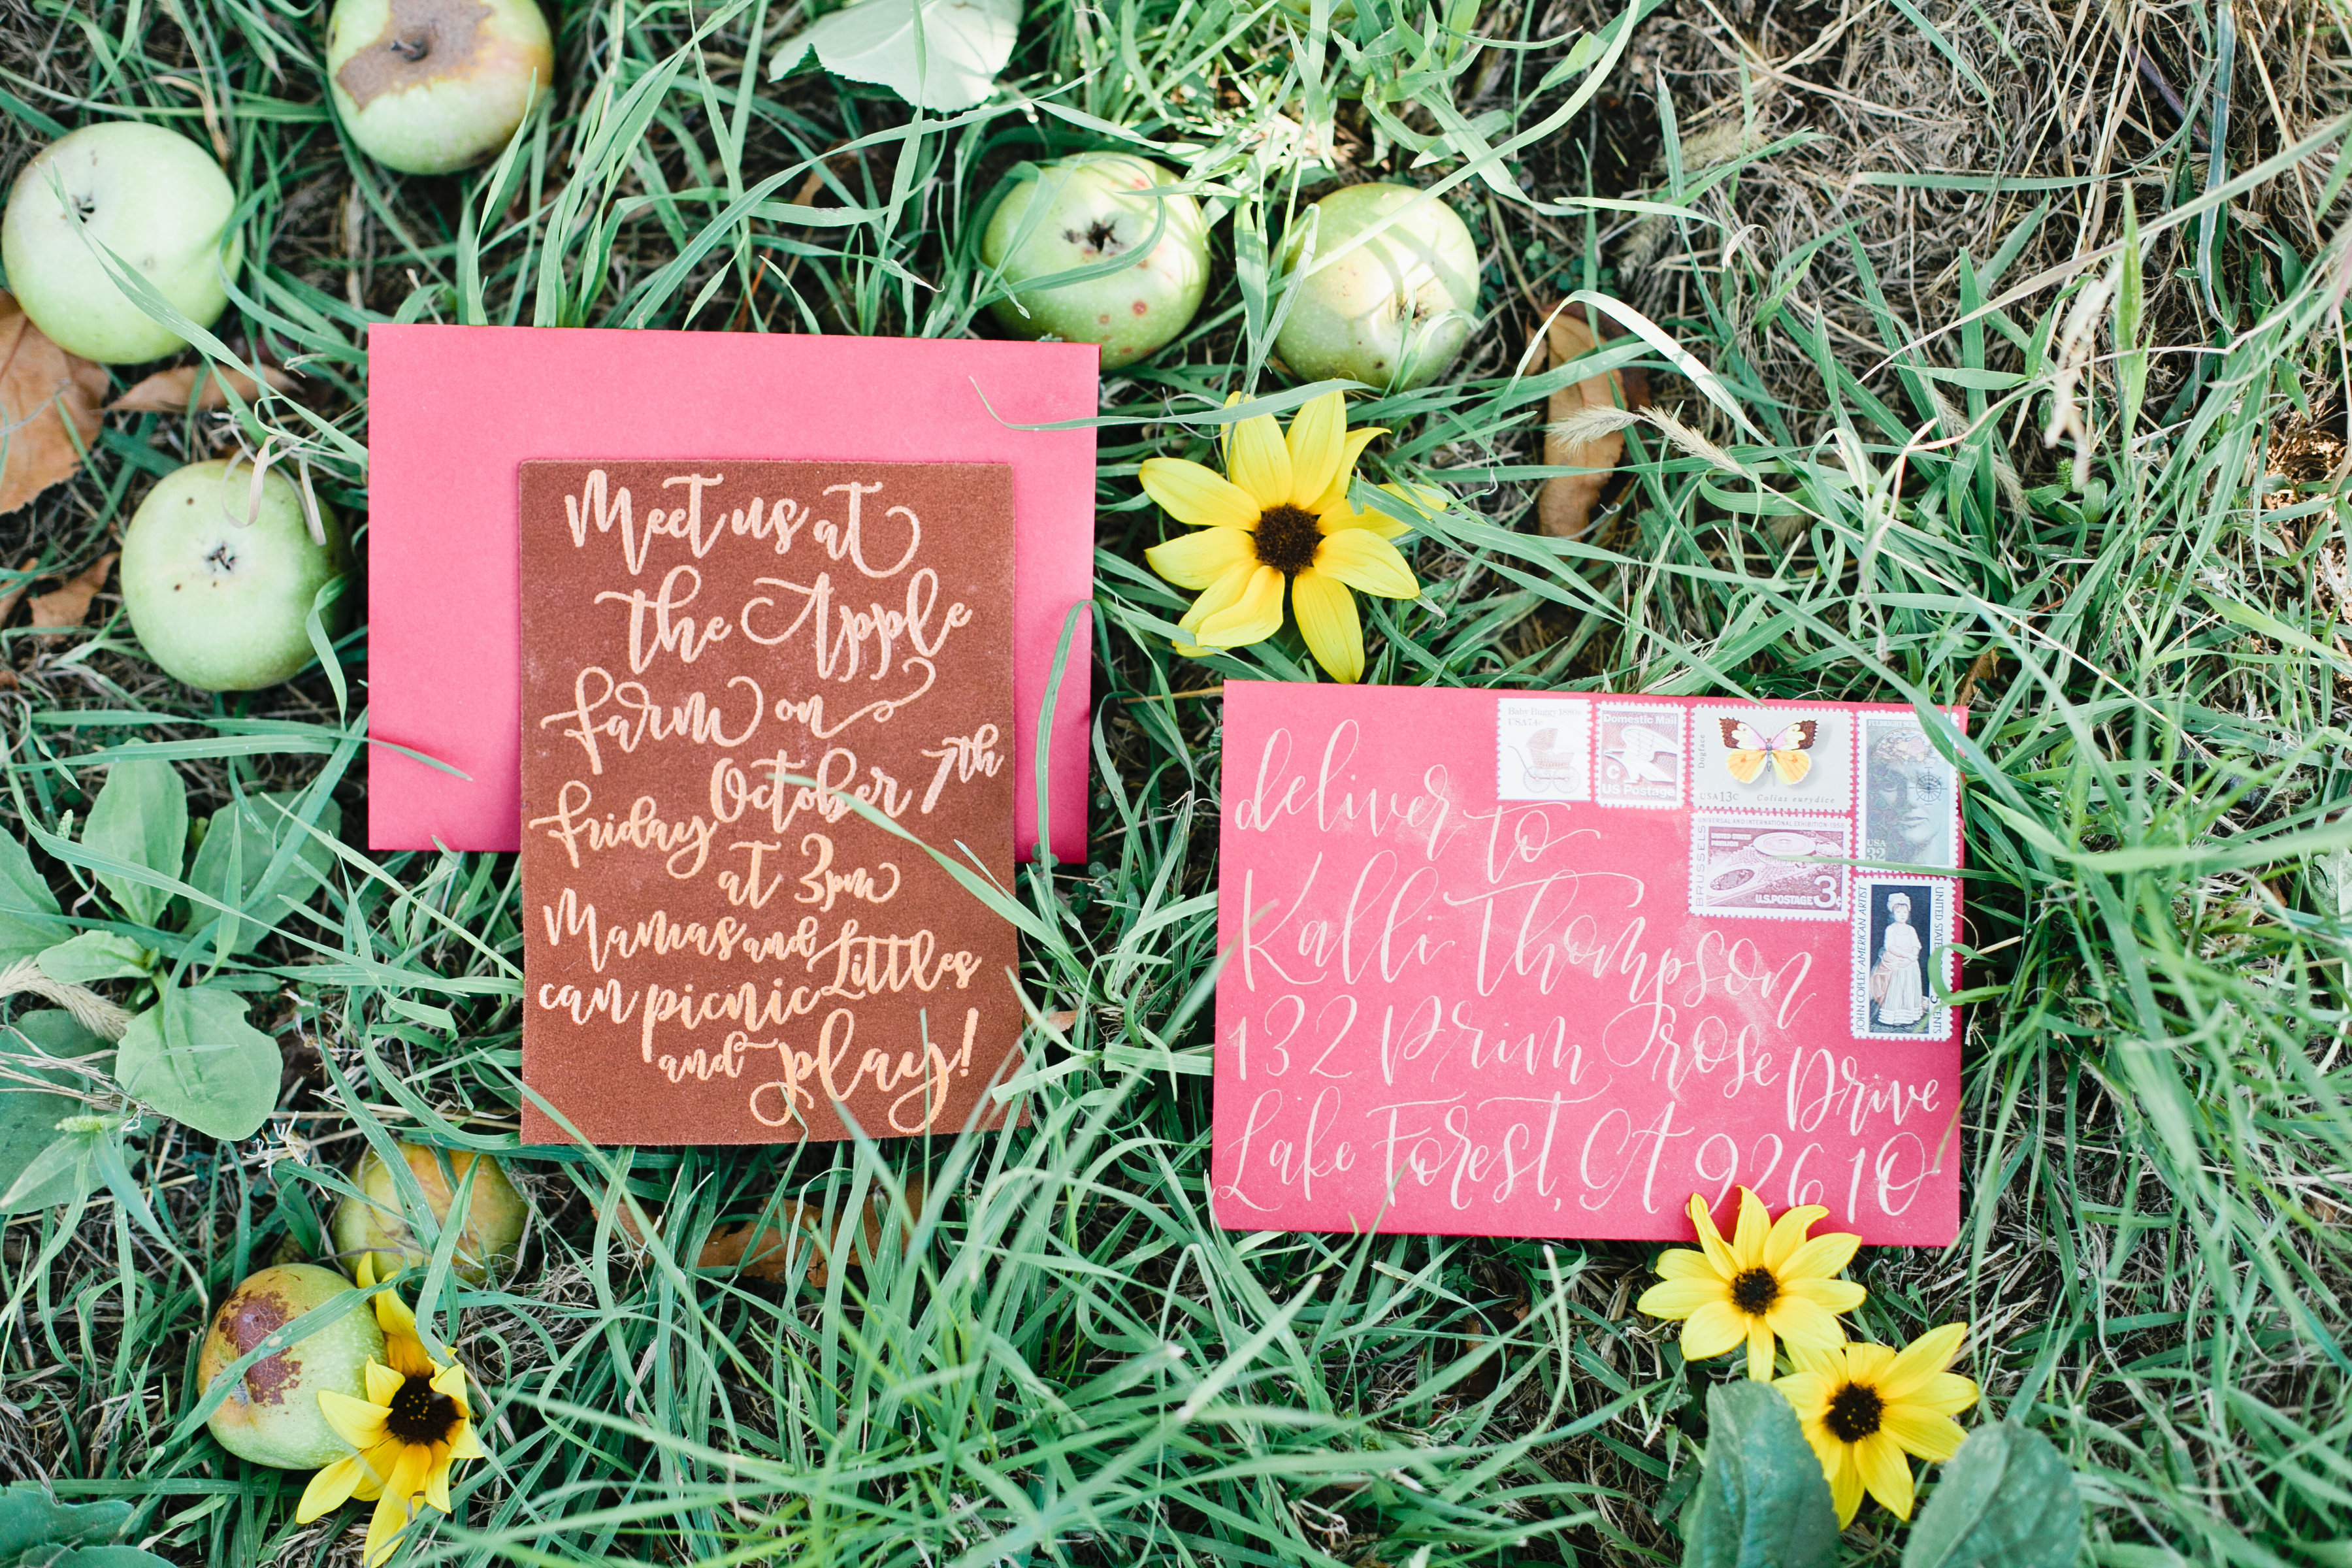 Meet us at
the Apple
Farm on
October 7th
Friday
at 3pm
Mamas and Littles
can picnic
and play!
deliver to
Kalli Thompson
132 Prim rose Drive
Lake Forest, CA 92610
Baby Buggy 1880s
USA 7.4c
Domestic Mail
C
US Postage
Dogface
USA 13c Colias eurydice
USA
32
BRUSSELS
UNIVERSAL AND INTERNATIONAL EXHIBITION 1958
U.S. POSTAGE 3¢
JOHN COPLEY, AMERICAN ARTIST
5 CENTS